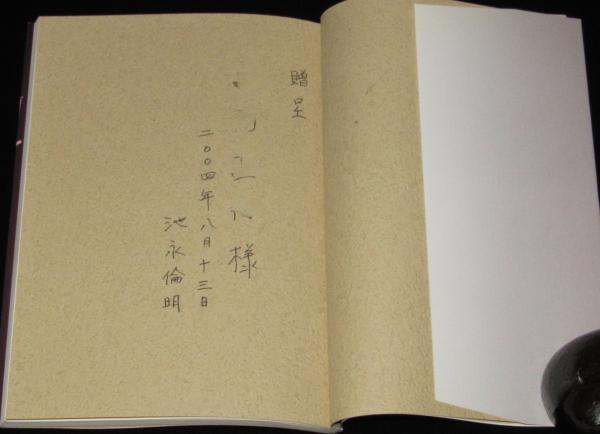 贈呈
様
二〇〇四年八月十三日
池永倫明